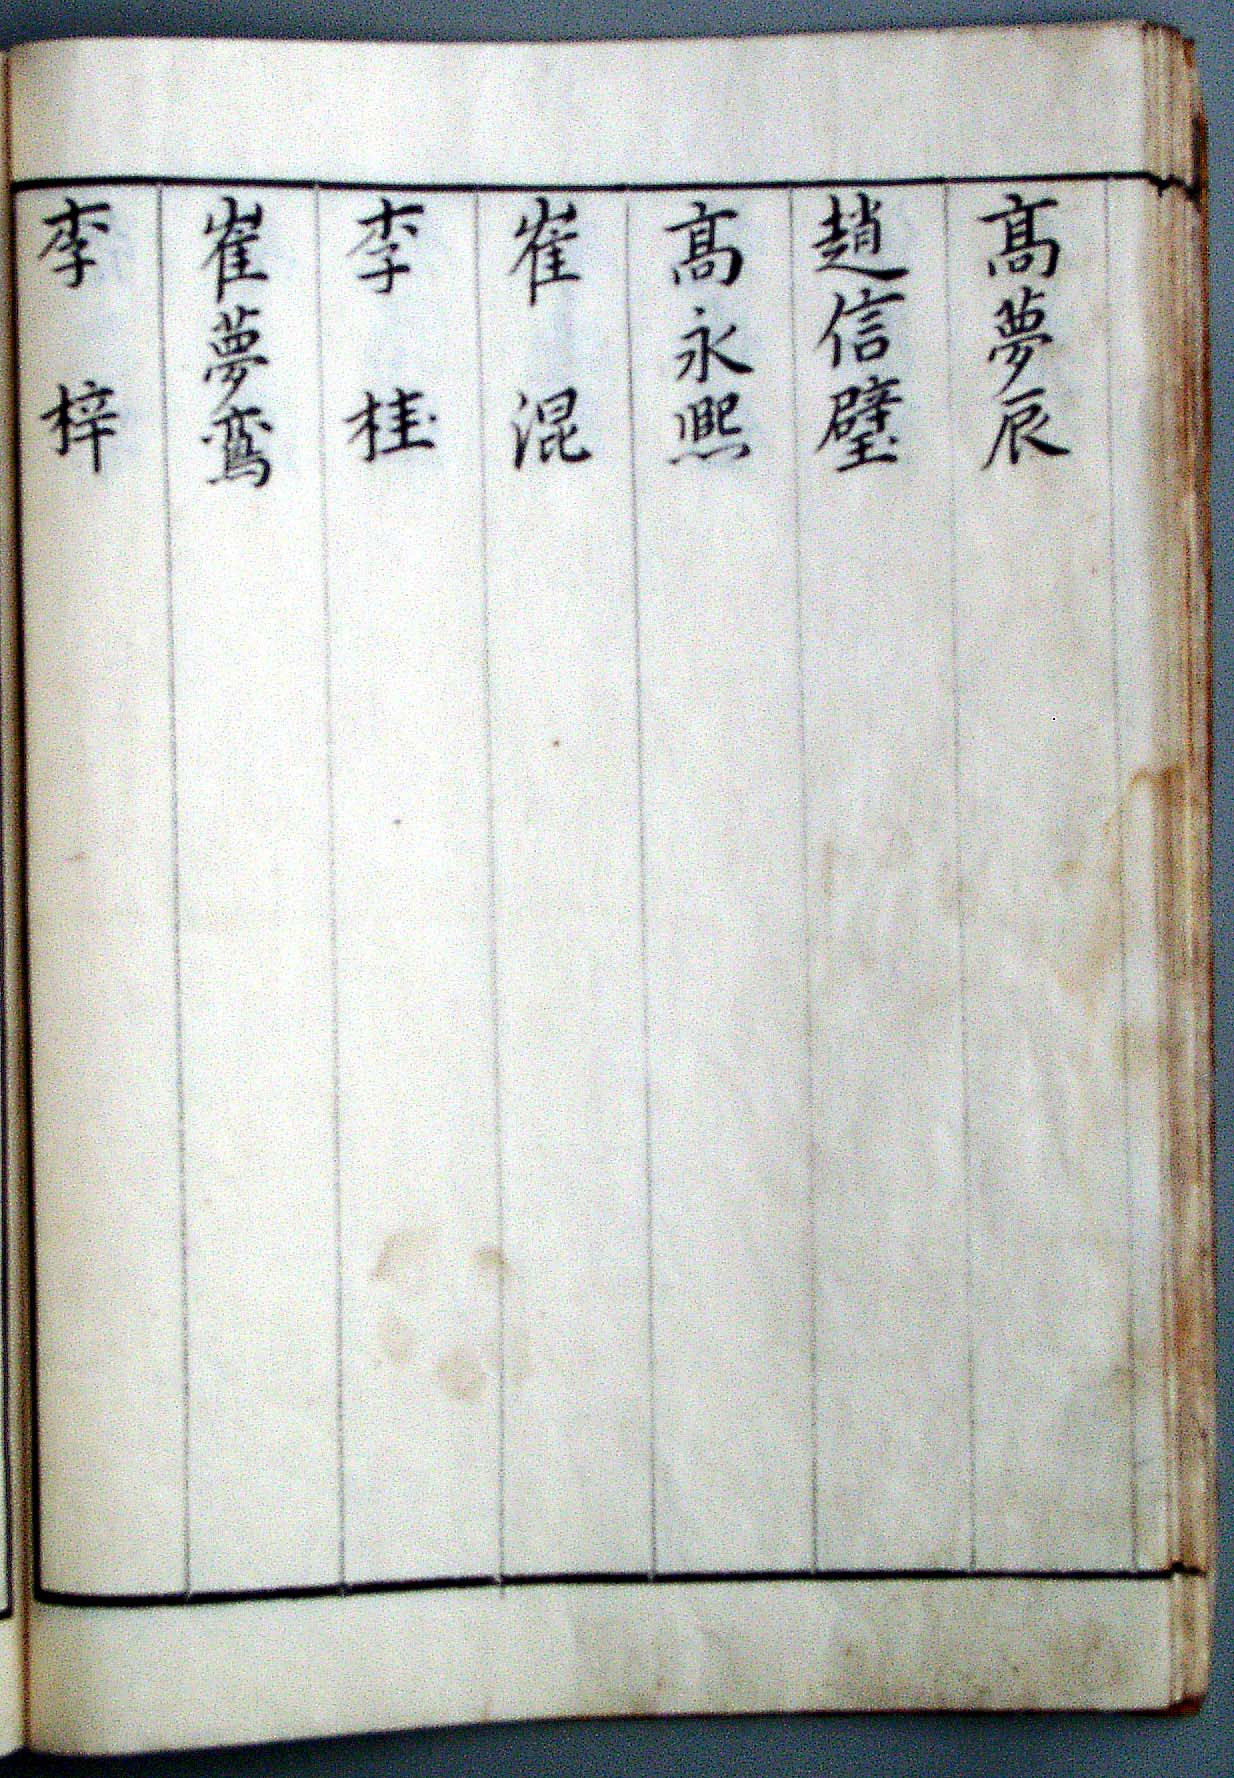 髙夢辰
趙信璧
髙永熙
崔混
李桂
崔夢鸞
李梓